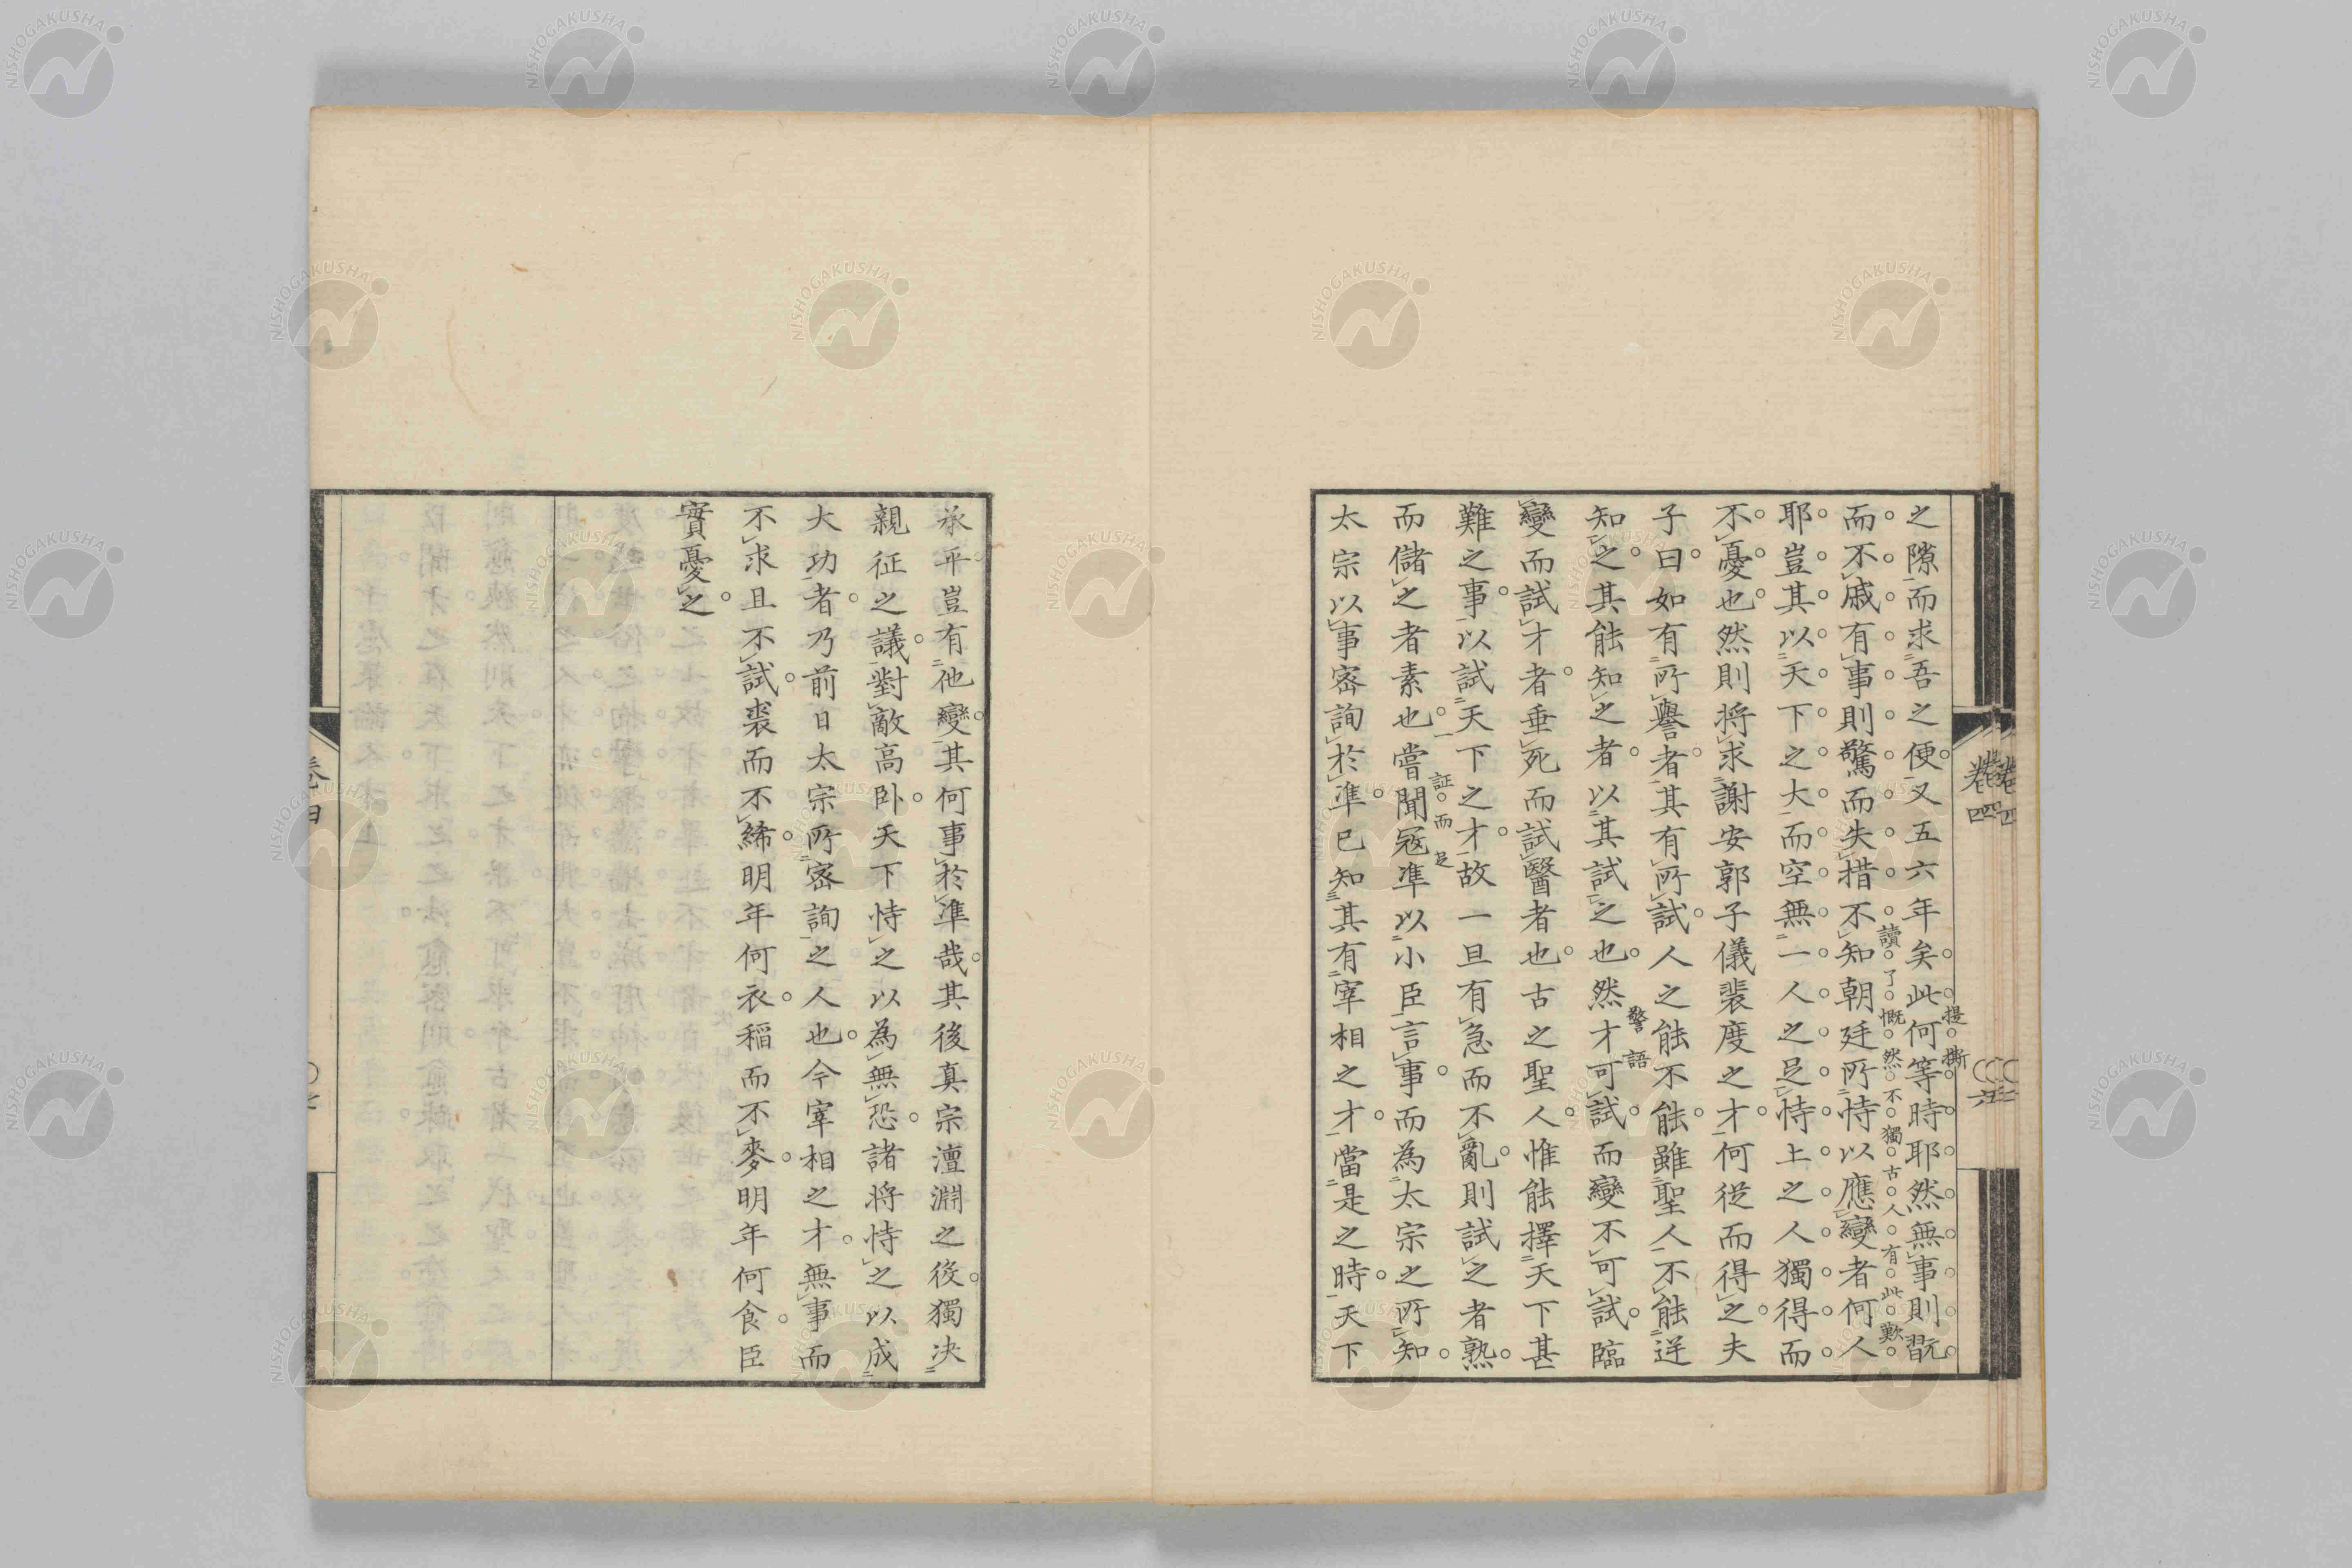 之隙而求吾之便又五六年矣此何等時耶然無事則翫
提撕
而不戚有事則驚而失措不知朝廷所恃以應變者何人
讀了慨然不獨古人有此歎
耶豈其以天下之大而空無一人之足恃土之人獨得而
不憂也然則将求謝安郭子儀裴度之才何從而得之夫
子曰如有所譽者其有所試人之能不能雖聖人不能逆
知之其能知之者以其試之也然才可試而變不可試臨
警語
變而試才者垂死而試醫者也古之聖人惟能擇天下甚
難之事以試天下之才故一旦有急而不亂則試之者熟
而儲之者素也嘗聞冦準以小臣言事而為太宗之所知
証而足
太宗以事密詢於準已知其有宰相之才當是之時天下
卷四
承平豈有他變其何事於準哉其後真宗澶淵之後獨決
親征之議對敵高卧天下恃之以為無恐諸将恃之以成
大功者乃前日太宗所密詢之人也今宰相之才無事而
不求且不試裘而不絺明年何衣稲而不麥明年何食臣
實憂之
NISHOGAKUSHA